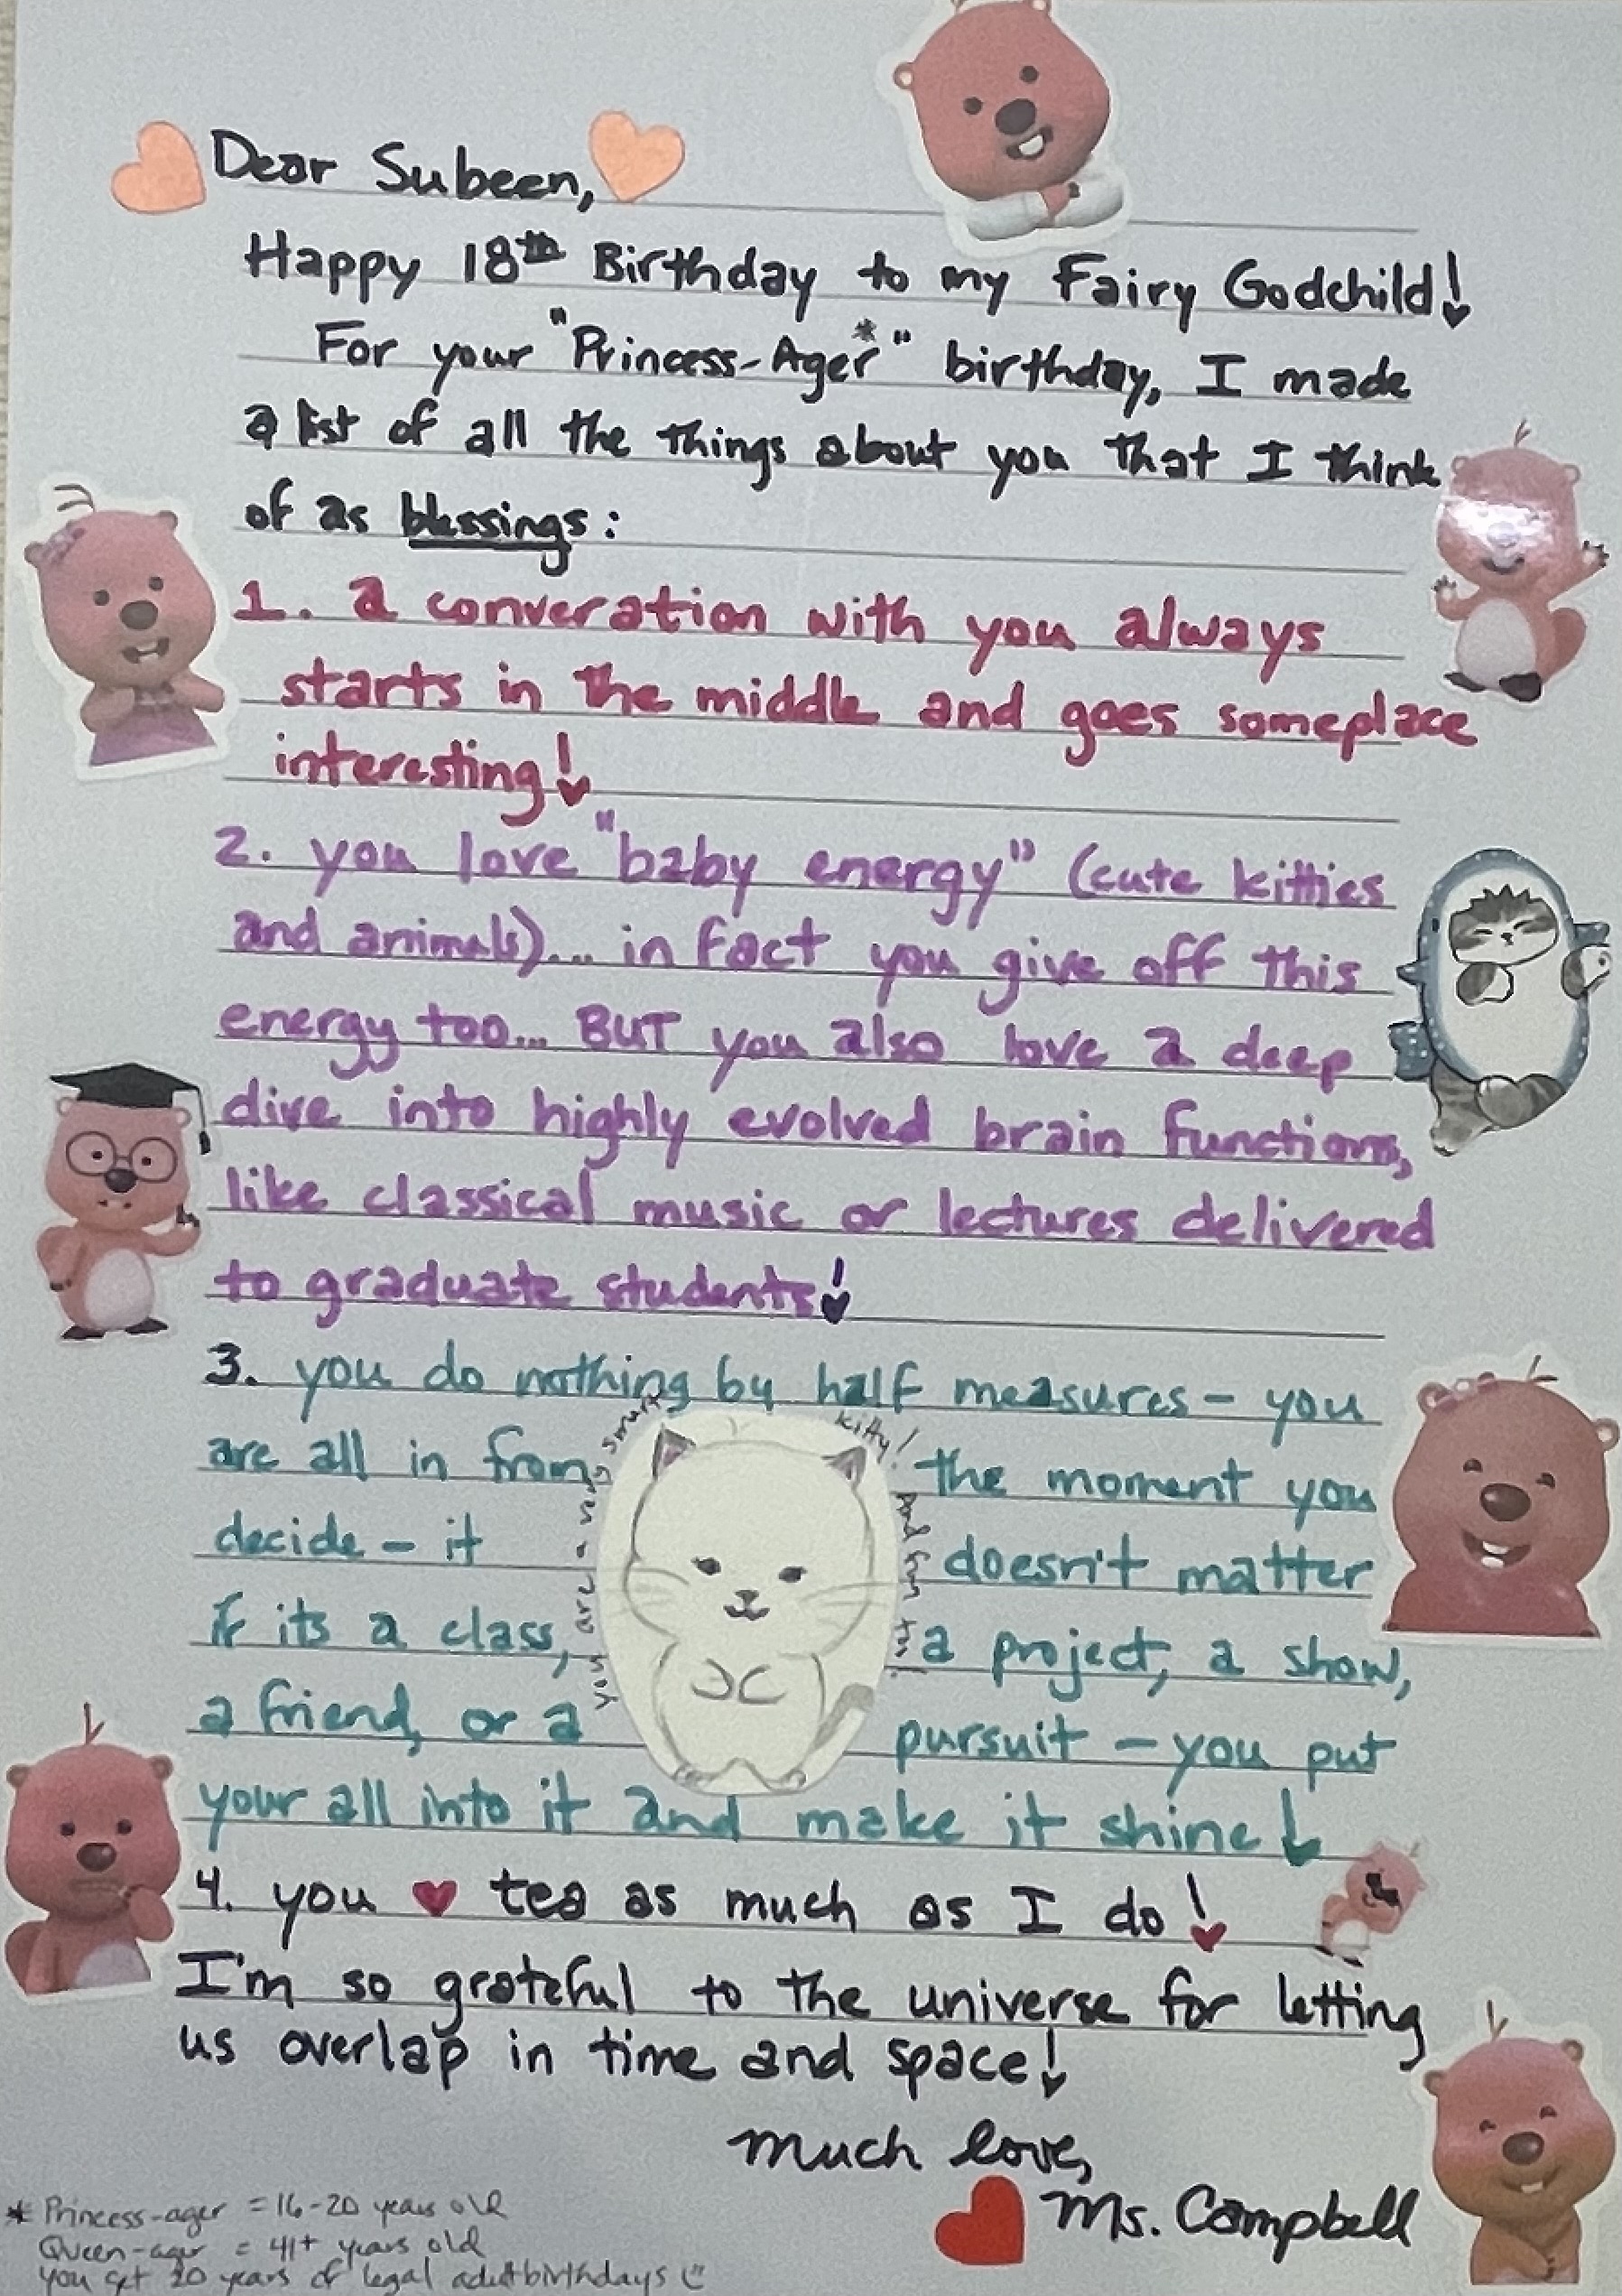 Dear Subeen,
Happy 18th Birthday to my Fairy Godchild!
For your "Princess-Ager*" birthday, I made
a list of all the things about you that I think
of as blessings:
1. a converation with you always
starts in the middle and goes someplace
interesting!
2. you love "baby energy" (cute kitties
and animals)... in fact you give off this
energy too... BUT you also love a deep
dive into highly evolved brain functions,
like classical music or lectures delivered
to graduate students!
3. you do nothing by half measures - you
are all in from the moment you
decide - it doesn't matter
if its a class, a project, a show,
a friend, or a pursuit - you put
your all into it and make it shine!
you are a very smart kitty!
and fun too!
4. you ♥ tea as much as I do!
I'm so grateful to the universe for letting
us overlap in time and space!
much love,
Ms. Campbell
* Princess-ager = 16-20 years old
Queen-ager = 41+ years old
you get 20 years of legal adult birthdays